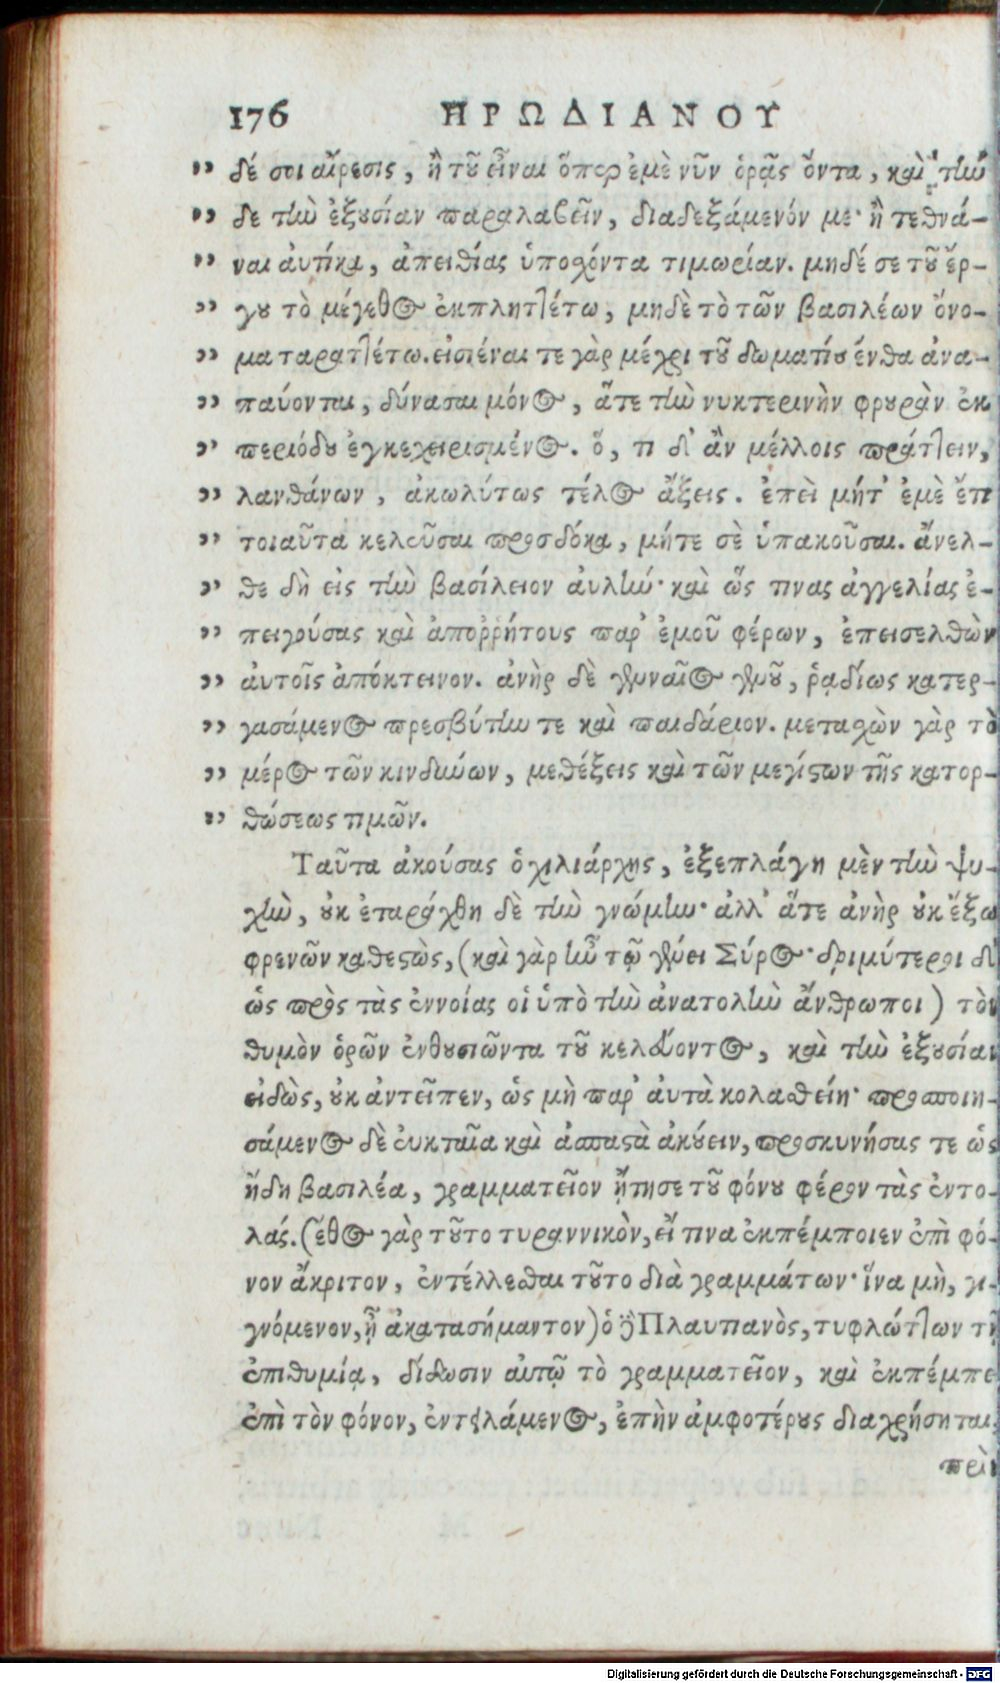 176 ΗΡΩΔΙΑΝΟΥ
„ δέ σοι αἵρεσις, ἢ τοῦ εἶναι ὅπερ ἐμὲ νῦν ὁρᾷς ὄντα, καὶ τήν
„ δε τὴν ἐξουσίαν παραλαβεῖν, διαδεξάμενόν με· ἢ τεθνά-
„ ναι αὐτίκα, ἀπειθείας ὑποσχόντα τιμωρίαν. μηδέ σε τοῦ ἔρ-
„ γου τὸ μέγεθος ἐκπληττέτω, μηδὲ τὸ τῶν βασιλέων ὄνο-
„ μα ταραττέτω. εἰσιέναι τε γὰρ μέχρι τοῦ δωματίου ἔνθα ἀνα-
„ παύονται, δύνασαι μόνος, ἅτε τὴν νυκτερινὴν φρουρὰν ἐκ
„ περιόδου ἐγκεχειρισμένος. ὅ, τι δ' ἂν μέλλοις πράττειν,
„ λανθάνων, ἀκωλύτως τέλος ἄξεις. ἐπεὶ μήτ' ἐμὲ ἔτι
„ τοιαῦτα κελεῦσαι προσδόκα, μήτε σὲ ὑπακοῦσαι. ἄνελ-
„ θε δὴ εἰς τὴν βασίλειον αὐλήν· καὶ ὥς τινας ἀγγελίας ἐ-
„ πειγούσας καὶ ἀποῤῥήτους παρ' ἐμοῦ φέρων, ἐπεισελθὼν
„ αὐτοῖς ἀπόκτεινον. ἀνὴρ δὲ γενναῖος γενοῦ, ῥᾳδίως κατερ-
„ γασάμενος πρεσβύτην τε καὶ παιδάριον. μετασχὼν γὰρ τὸ
„ μέρος τῶν κινδύνων, μεθέξεις καὶ τῶν μεγίστων τῆς κατορ-
„ θώσεως τιμῶν.
Ταῦτα ἀκούσας ὁ χιλιάρχης, ἐξεπλάγη μὲν τὴν ψυ-
χὴν, οὐκ ἐταράχθη δὲ τὴν γνώμην· ἀλλ' ἅτε ἀνὴρ οὐκ ἔξω
φρενῶν καθεστὼς, (καὶ γὰρ ἦν τῷ γένει Σύρος· δριμύτεροι δ'
ὡς πρὸς τὰς ἐννοίας οἱ ὑπὸ τὴν ἀνατολὴν ἄνθρωποι) τὸν
θυμὸν ὁρῶν ἐνθουσιῶντα τοῦ κελεύοντος, καὶ τὴν ἐξουσίαν
εἰδὼς, οὐκ ἀντεῖπεν, ὡς μὴ παρ' αὐτὰ κολασθείη· προσποιη-
σάμενος δὲ εὐκταῖα καὶ ἀσπαστὰ ἀκούειν, προσκυνήσας τε ὡς
ἤδη βασιλέα, γραμματεῖον ᾔτησε τοῦ φόνου φέρον τὰς ἐντο-
λάς. (ἔθος γὰρ τοῦτο τυραννικὸν, εἴ τινα ἐκπέμποιεν ἐπὶ φό-
νον ἄκριτον, ἐντέλλεσθαι τοῦτο διὰ γραμμάτων· ἵνα μὴ, γι-
γνόμενον, ᾖ ἀκατασήμαντον) ὁ δὲ Πλαυτιανὸς, τυφλώττων τῇ
ἐπιθυμίᾳ, δίδωσιν αὐτῷ τὸ γραμματεῖον, καὶ ἐκπέμπει
ἐπὶ τὸν φόνον, ἐντειλάμενος, ἐπὴν ἀμφοτέρους διαχρήσηται,
πρὶν
Digitalisierung gefördert durch die Deutsche Forschungsgemeinschaft - DFG